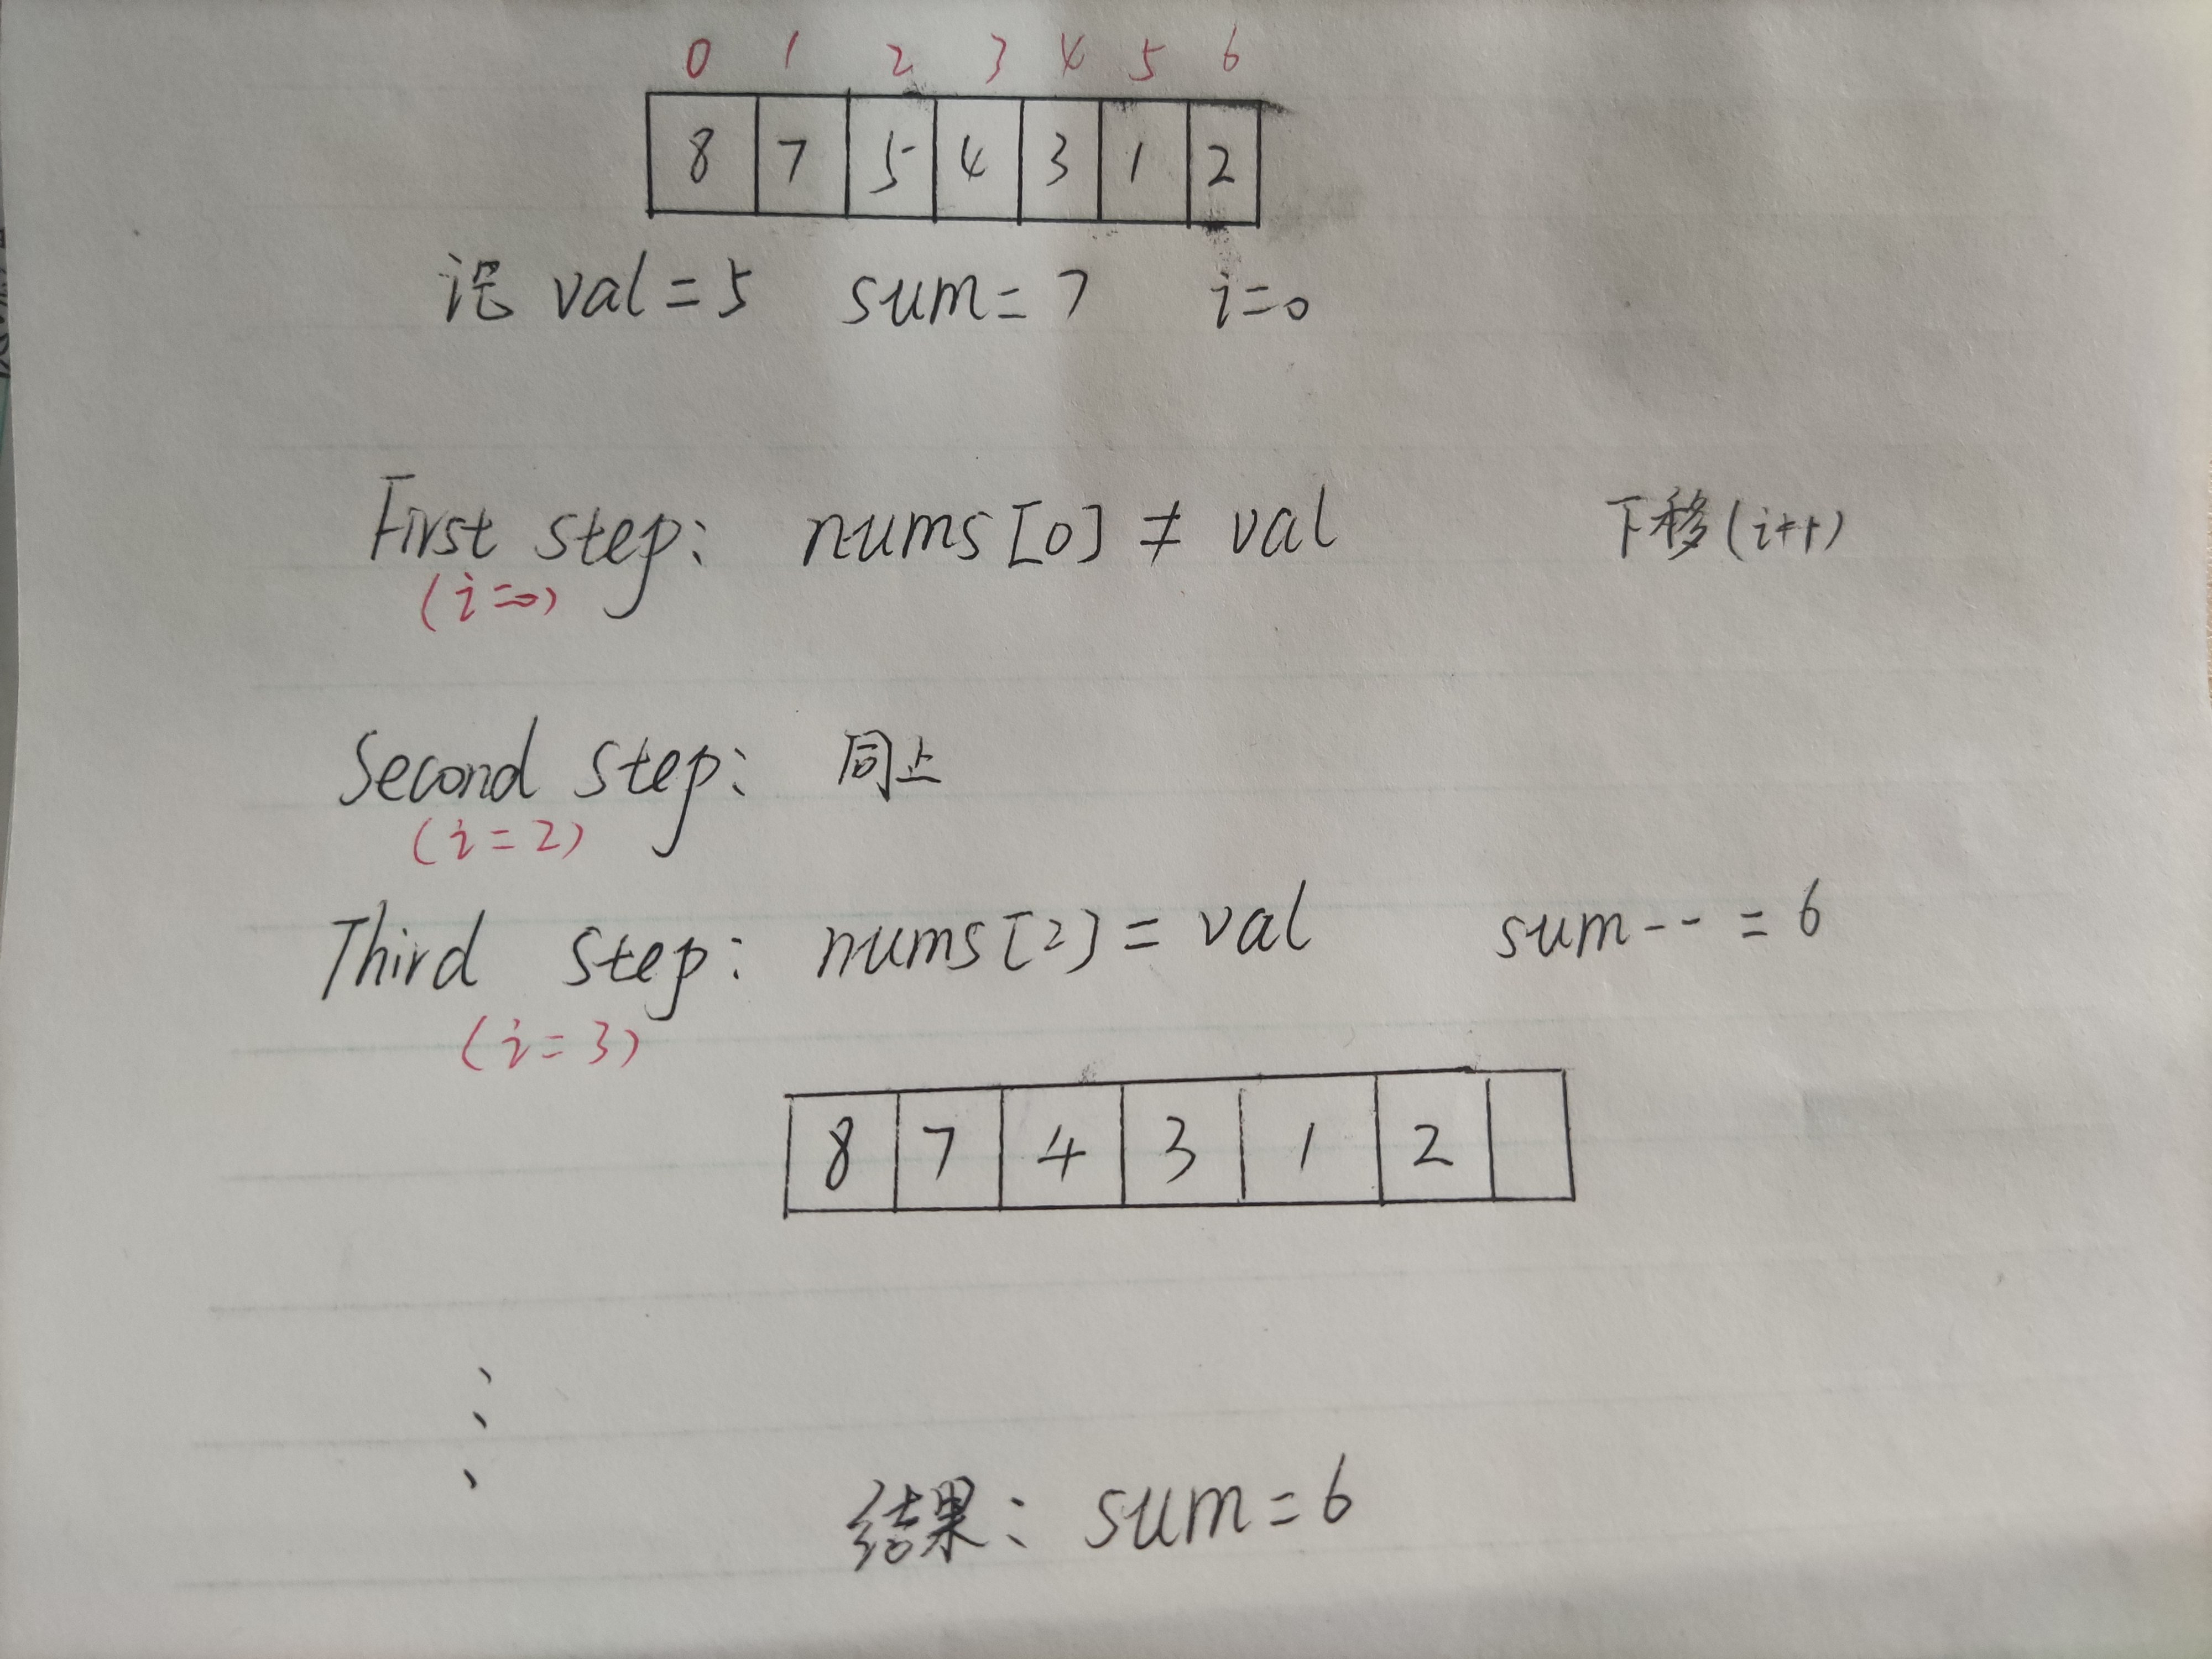 0 1 2 3 4 5 6
8 7 5 4 3 1 2
设 val = 5 sum = 7 i=0
First step: nums[0] ≠ val 下移(i++)
(i=0)
Second step: 同上
(i=2)
Third step: nums[2] = val sum-- = 6
(i=3)
8 7 4 3 1 2
结果: sum = 6